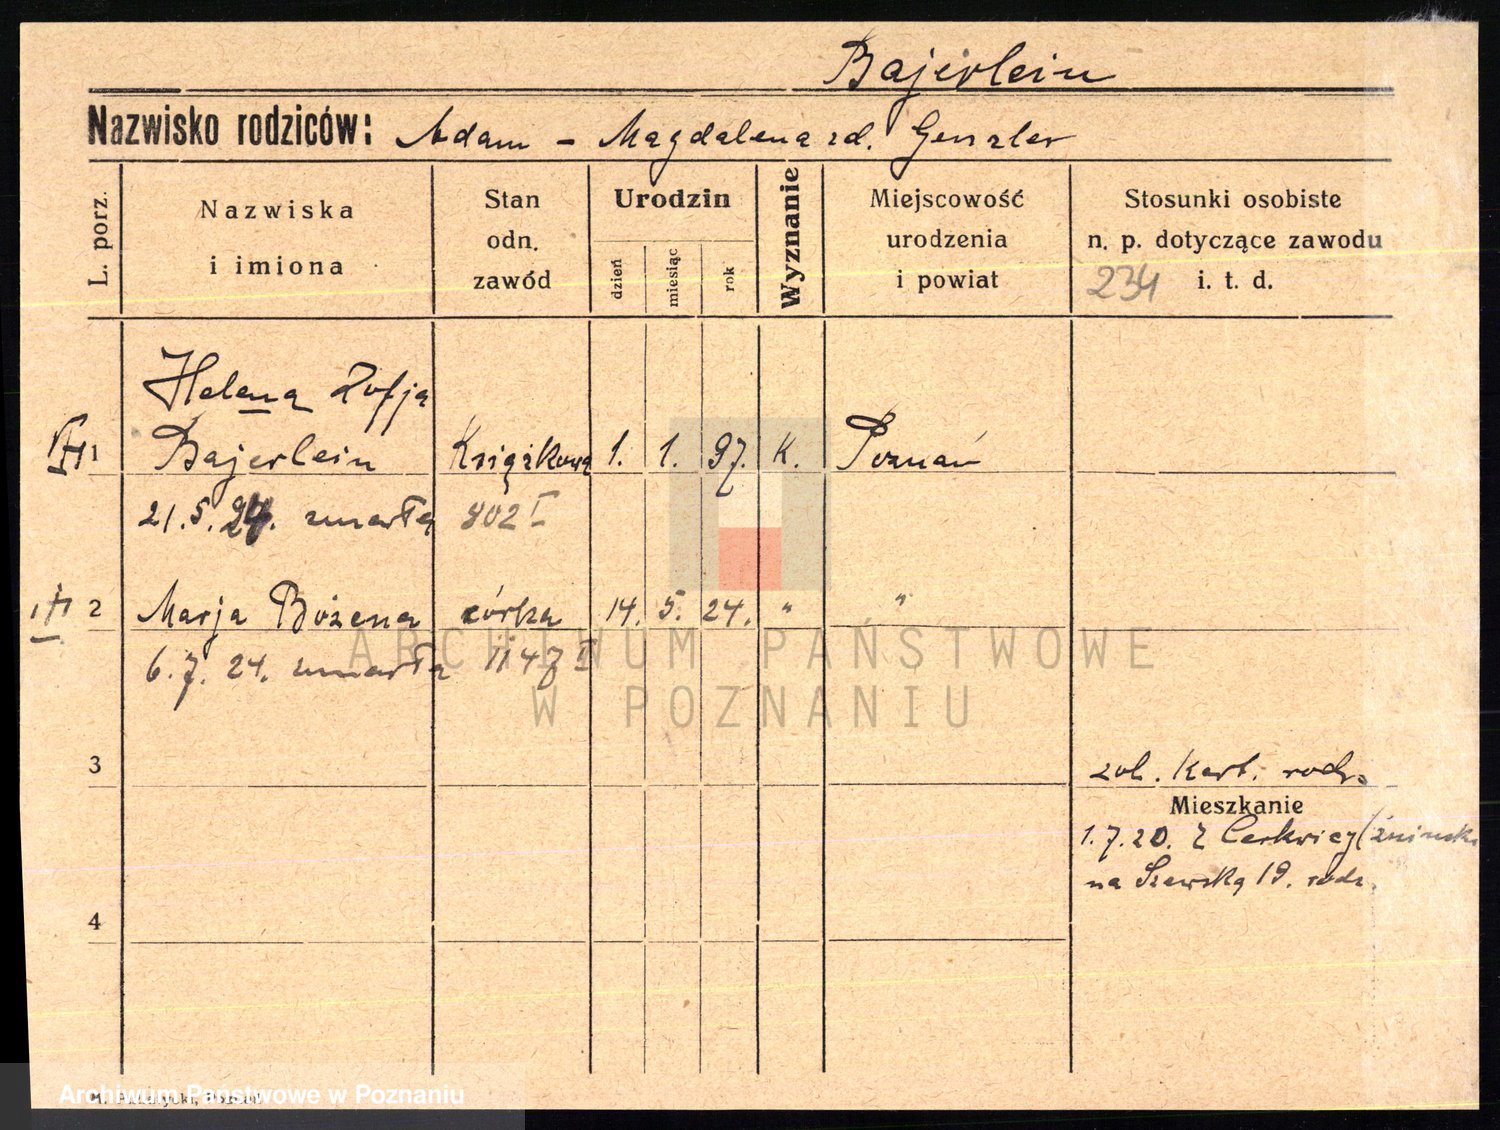 Bajerlein
Nazwisko rodziców: Adam - Magdalena zd. Genzler
L. porz.
Nazwiska
i imiona
Stan
odn.
zawód
Urodzin
dzień
miesiąc
rok
Wyznanie
Miejscowość
urodzenia
i powiat
Stosunki osobiste
n. p. dotyczące zawodu
234 i. t. d.
Helena Zofja
1 Bajerlein Książkowa 1. 1. 97. K. Poznań
21. 5. 24. zmarła 802 I
2 Marja Bożena córka 14. 5. 24. " "
6. 7. 24. zmarła 1147 I
ARCHIWUM PAŃSTWOWE
W POZNANIU
3
zob. Kart. rodz.
Mieszkanie
1. 7. 20. z Cerkwicy
na Szewską 19. rodz.
4
Archiwum Państwowe w Poznaniu